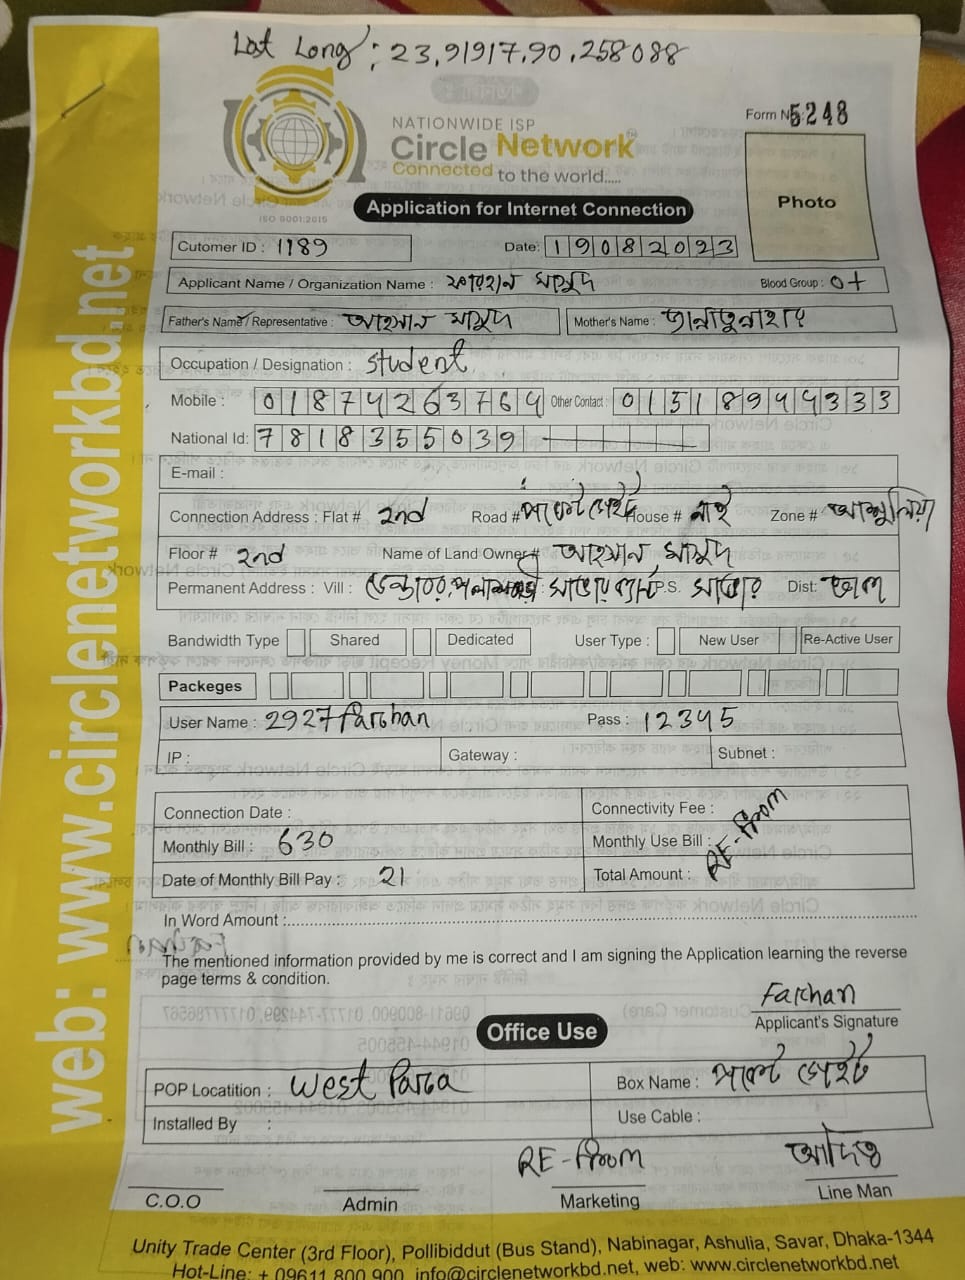 Lat Long : 23.91917,90.258088
Form No 5248
NATIONWIDE ISP
Circle Network
Connected to the world.....
ISO 9001:2015
Photo
Application for Internet Connection
Cutomer ID : 1189 Date: 19082023
Applicant Name / Organization Name : ফারহান মাসুদ Blood Group : O+
Father's Name / Representative : আহসান মাসুদ Mother's Name : জান্নাতুননাহার
Occupation / Designation : Student
Mobile : 01874263764 Other Contact 01518944333
National Id: 7818355039
E-mail :
Connection Address : Flat # 2nd Road # House # নাই Zone # আশুলিয়া
Floor # 2nd Name of Land Owner # আহসান মাসুদ
Permanent Address : Vill : P.S. সাভার Dist: ঢাকা
Bandwidth Type Shared Dedicated User Type : New User Re-Active User
Packeges
User Name : 2927farhan Pass : 12345
IP : Gateway : Subnet :
Connection Date : Connectivity Fee :
Monthly Bill : 630 Monthly Use Bill :
Date of Monthly Bill Pay : 21 Total Amount : RE-from
In Word Amount :
The mentioned information provided by me is correct and I am signing the Application learning the reverse
page terms & condition.
Farhan
Applicant's Signature
Office Use
POP Locatition : West Para Box Name :
Installed By : Use Cable :
RE-from
C.O.O Admin Marketing Line Man
Unity Trade Center (3rd Floor), Pollibiddut (Bus Stand), Nabinagar, Ashulia, Savar, Dhaka-1344
Hot-Line: + 09611 800 900, info@circlenetworkbd.net, web: www.circlenetworkbd.net
web: www.circlenetworkbd.net